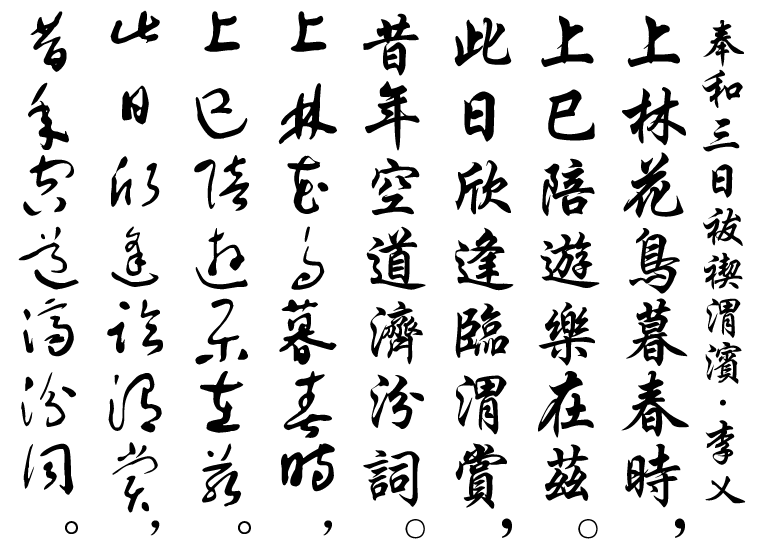 奉和三日祓禊渭濱·李乂
上林花鳥暮春時,
上巳陪遊樂在茲。
此日欣逢臨渭賞,
昔年空道濟汾詞。
上林花鳥暮春時,
上巳陪遊樂在茲。
此日欣逢臨渭賞,
昔年空道濟汾詞。